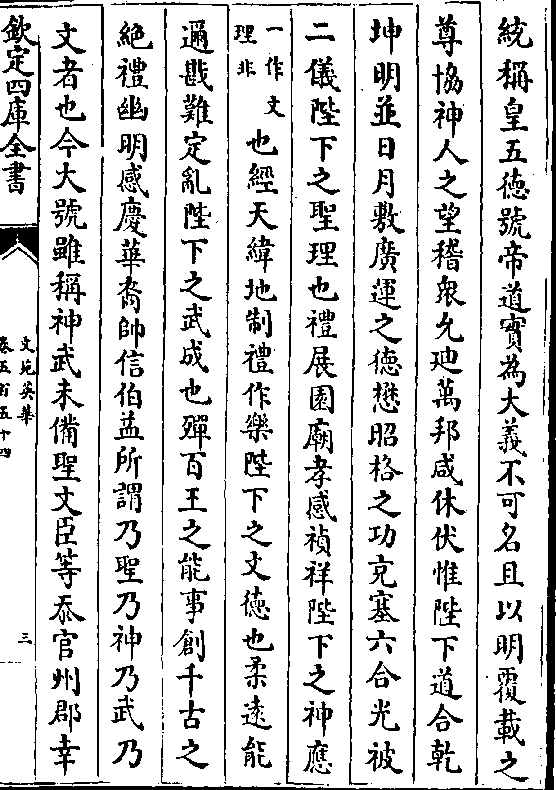 統稱皇五德號帝道實為大義不可名且以明覆載之
尊協神人之望稽衆允迪萬邦咸休伏惟陛下道合乾
坤明並日月敷廣運之德懋昭格之功充塞六合光被
二儀陛下之聖理也禮展園廟孝感禎祥陛下之神應
一作文
理非
也經天緯地制禮作樂陛下之文德也柔逺能
邇戡難定亂陛下之武成也殫百王之能事創千古之
絶禮幽明感慶華裔帥信伯益所謂乃聖乃神乃武乃
文者也今大號雖稱神武未備聖文臣等忝官州郡幸
欽定四庫全書
文苑英華
卷五百五十四
三